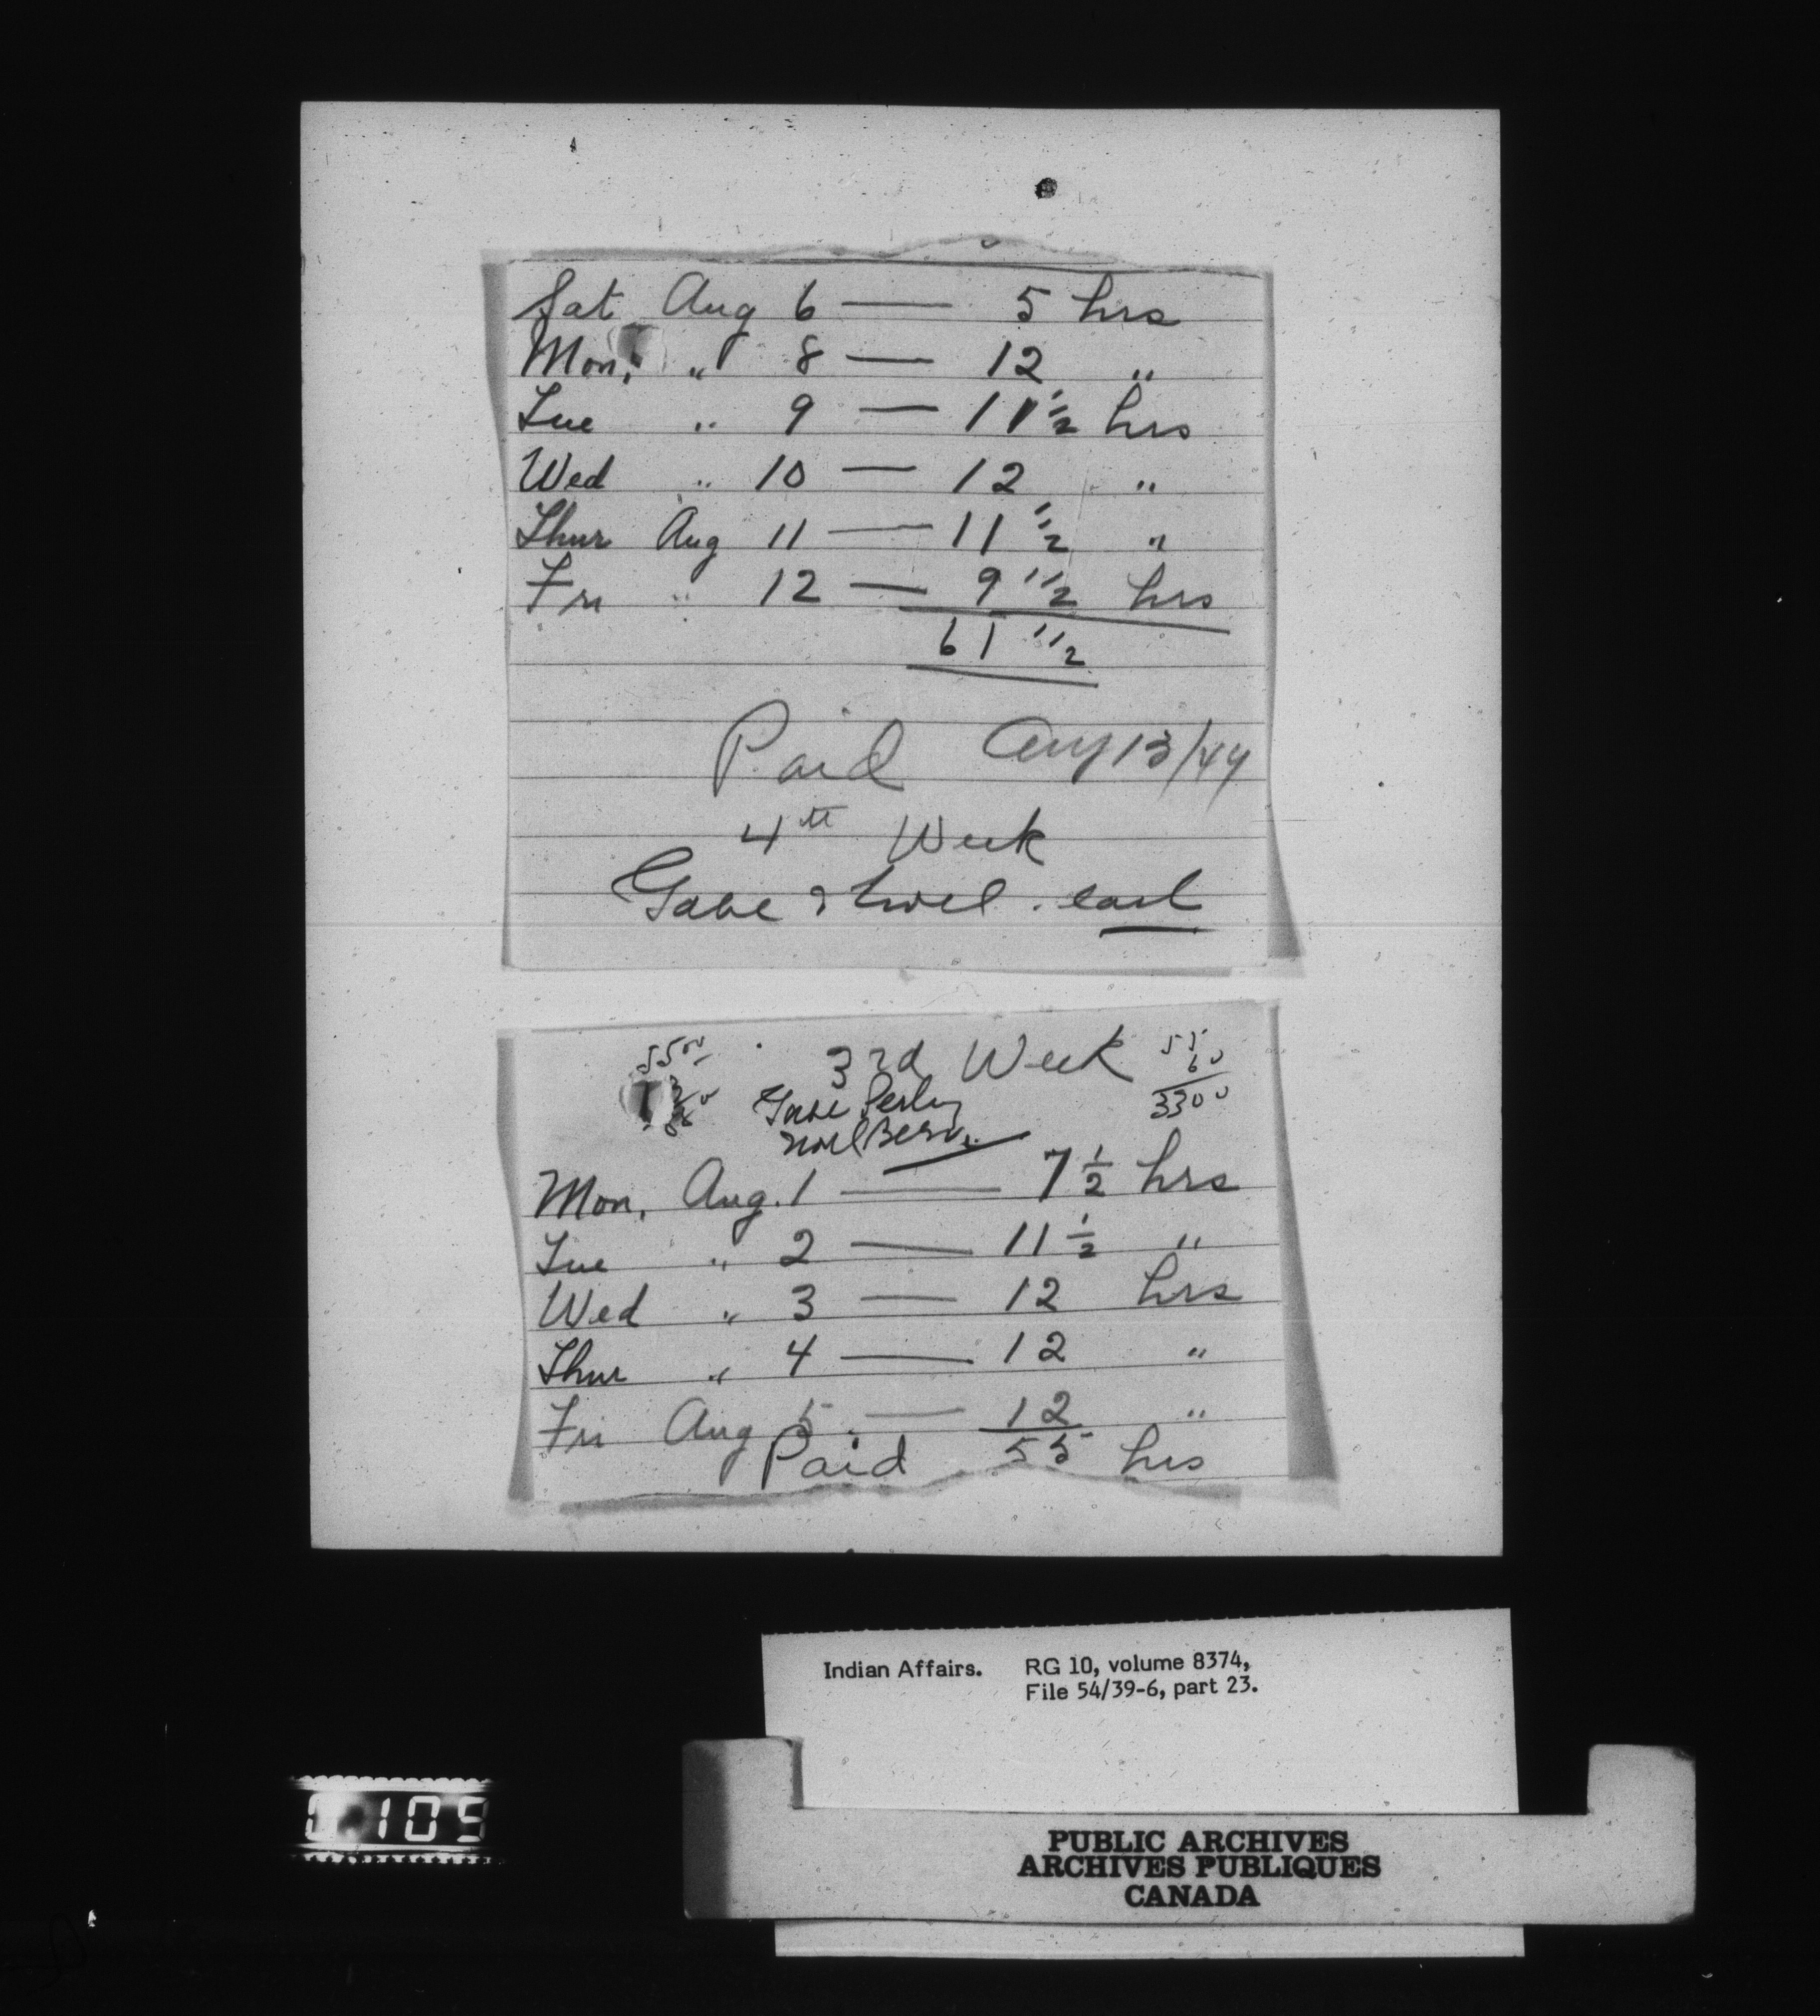 Sat Aug 6 — 5 hrs
Mon, " 8 — 12 "
Tue " 9 — 11 1/2 hrs
Wed " 10 — 12 "
Thur Aug 11 — 11 1/2 "
Fri " 12 — 9 1/2 hrs
61 1/2
Paid Aug 13/49
4th Week
Gabe & Noel. each
3rd Week
55
60
3300
Gabe Perley
Noel
Mon, Aug. 1 — 7 1/2 hrs
Tue " 2 — 11 1/2 "
Wed " 3 — 12 hrs
Thur " 4 — 12 "
Fri Aug 5 — 12 "
Paid 55 hrs
Indian Affairs. RG 10, volume 8374,
File 54/39-6, part 23.
105
PUBLIC ARCHIVES
ARCHIVES PUBLIQUES
CANADA